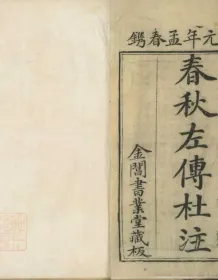 元年孟春鐫
春秋左傳杜注
金閶書業堂藏板